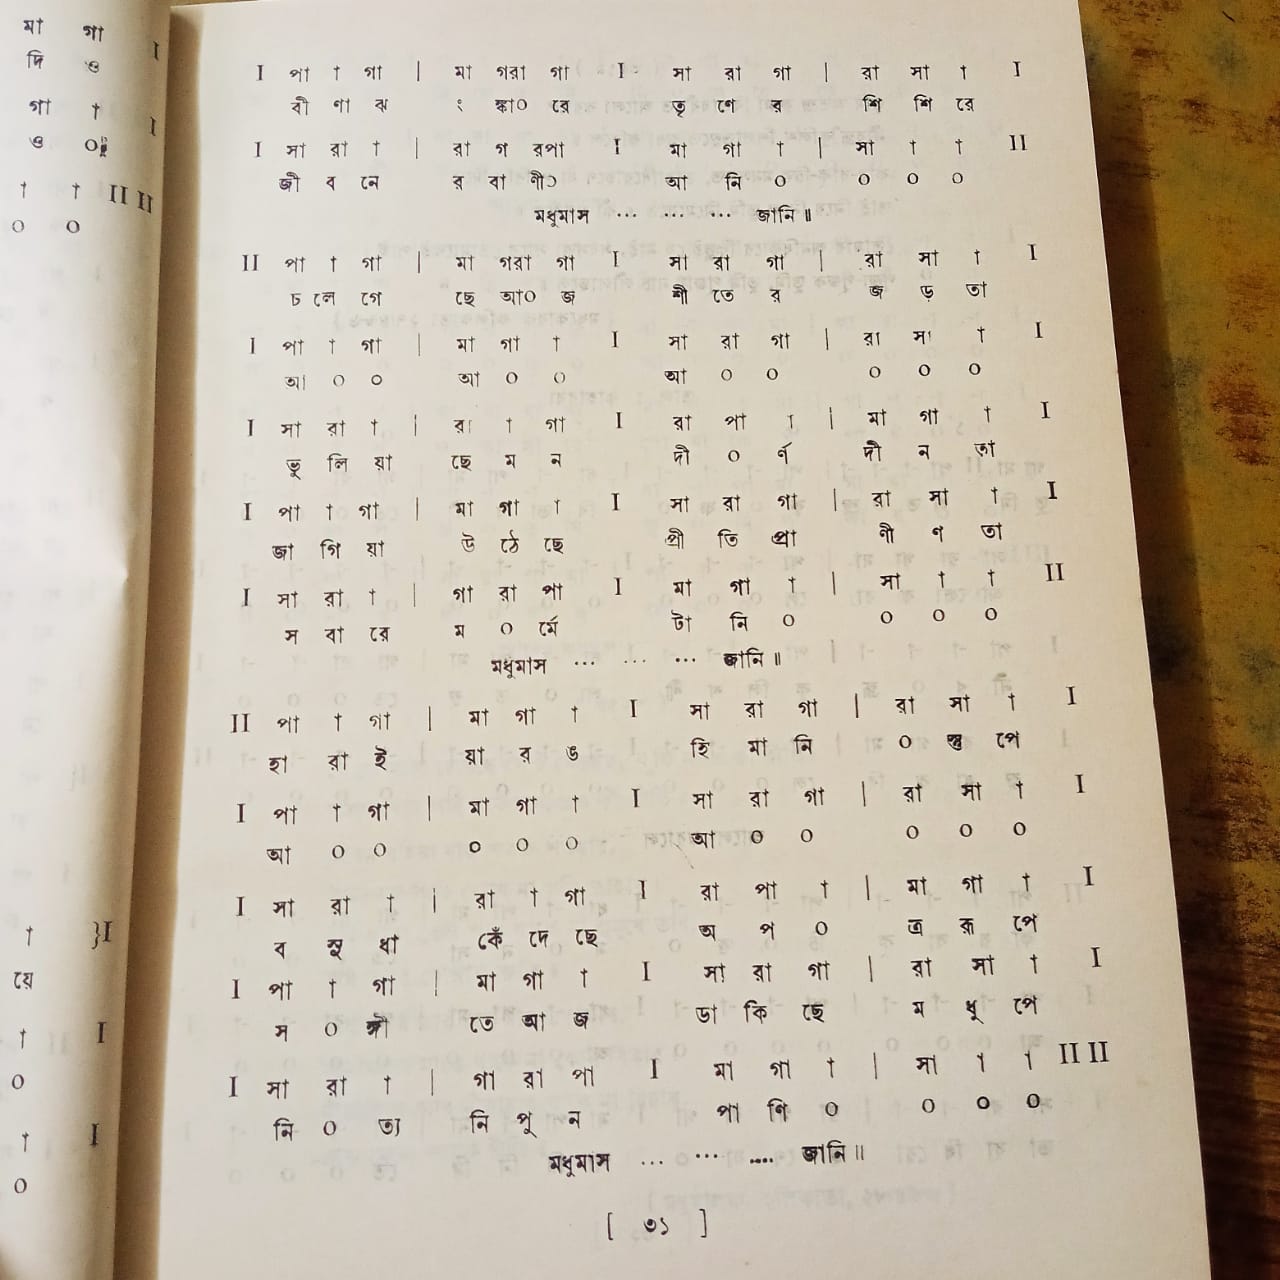 I পা া গা | মা গরা গা I সা রা গা | রা সা া I
বী ণা ঝ ং ঙ্কা০ রে তৃ ণে র শি শি রে
I সা রা া | রা গ রপা I মা গা া | সা া া II
জী ব নে র বা ণী০ আ নি ০ ০ ০ ০
মধুমাস ... ... ... জানি॥
II পা া গা | মা গরা গা I সা রা গা | রা সা া I
চ লে গে ছে আ০ জ শী তে র জ ড় তা
I পা া গা | মা গা া I সা রা গা | রা সা া I
আ ০ ০ আ ০ ০ আ ০ ০ ০ ০ ০
I সা রা া | রা া গা I রা পা া | মা গা া I
ভু লি য়া ছে ম ন দী ০ র্ণ দী ন তা
I পা া গা | মা গা া I সা রা গা | রা সা া I
জা গি য়া উ ঠে ছে প্রী তি প্রা ণী ণ তা
I সা রা া | গা রা পা I মা গা া | সা া া II
স বা রে ম ০ র্মে টা নি ০ ০ ০ ০
মধুমাস ... ... ... জানি॥
II পা া গা | মা গা া I সা রা গা | রা সা া I
হা রা ই য়া র ঙ হি মা নি ০ স্তু পে
I পা া গা | মা গা া I সা রা গা | রা সা া I
আ ০ ০ ০ ০ ০ আ ০ ০ ০ ০ ০
I সা রা া | রা া গা I রা পা া | মা গা া I
ব সু ধা কেঁ দে ছে অ প ০ ত্র রূ পে
I পা া গা | মা গা া I সা রা গা | রা সা া I
স ০ ঙ্গী তে আ জ ডা কি ছে ম ধু পে
I সা রা া | গা রা পা I মা গা া | সা া া II II
নি ০ ত্য নি পু ন পা ণি ০ ০ ০ ০
মধুমাস ... ... .... জানি॥
[ ৩১ ]